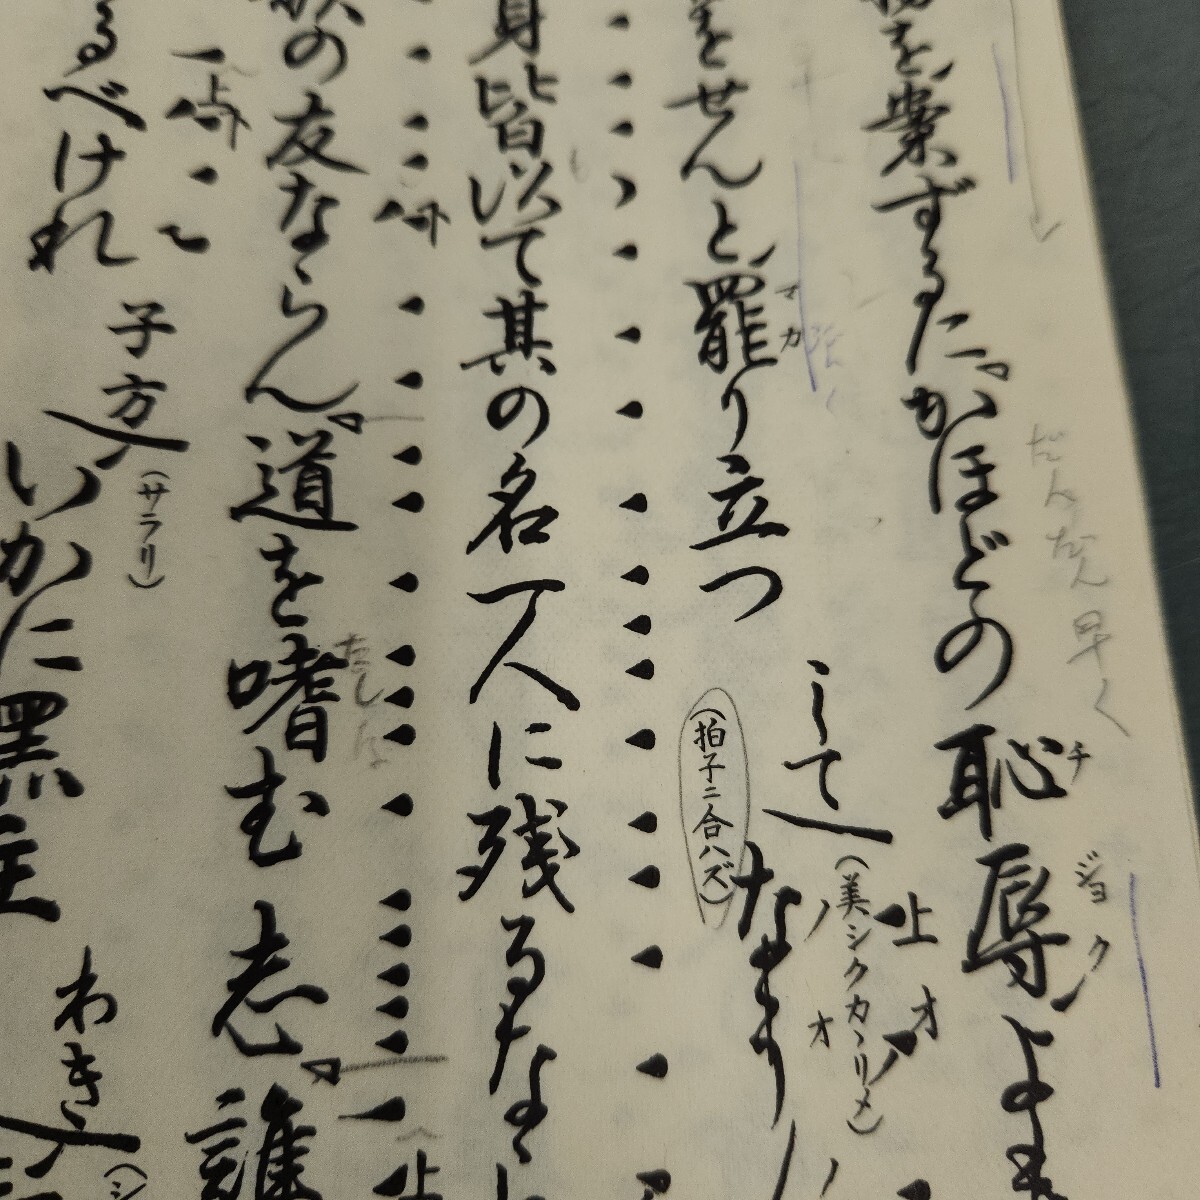 を案ずるに。かほどの恥辱よも
チ
ジョク
だんだん早く
をせんと、罷り立つ
マカ
(拍子ニ合ハズ)
して
(美シクカヽリメ)
上
オ
オ
身皆以て其の名一人に残るな
歌の友ならん。道を嗜む志。誰
たしな
るべけれ
上
子方
(サラリ)
いかに黒主
わき
上